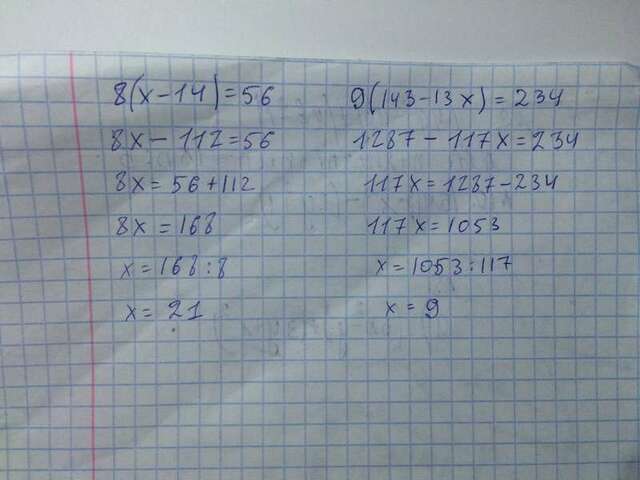 8(x-14)=56
8x-112=56
8x=56+112
8x=168
x=168:8
x=21
9(143-13x)=234
1287-117x=234
117x=1287-234
117x=1053
x=1053:117
x=9